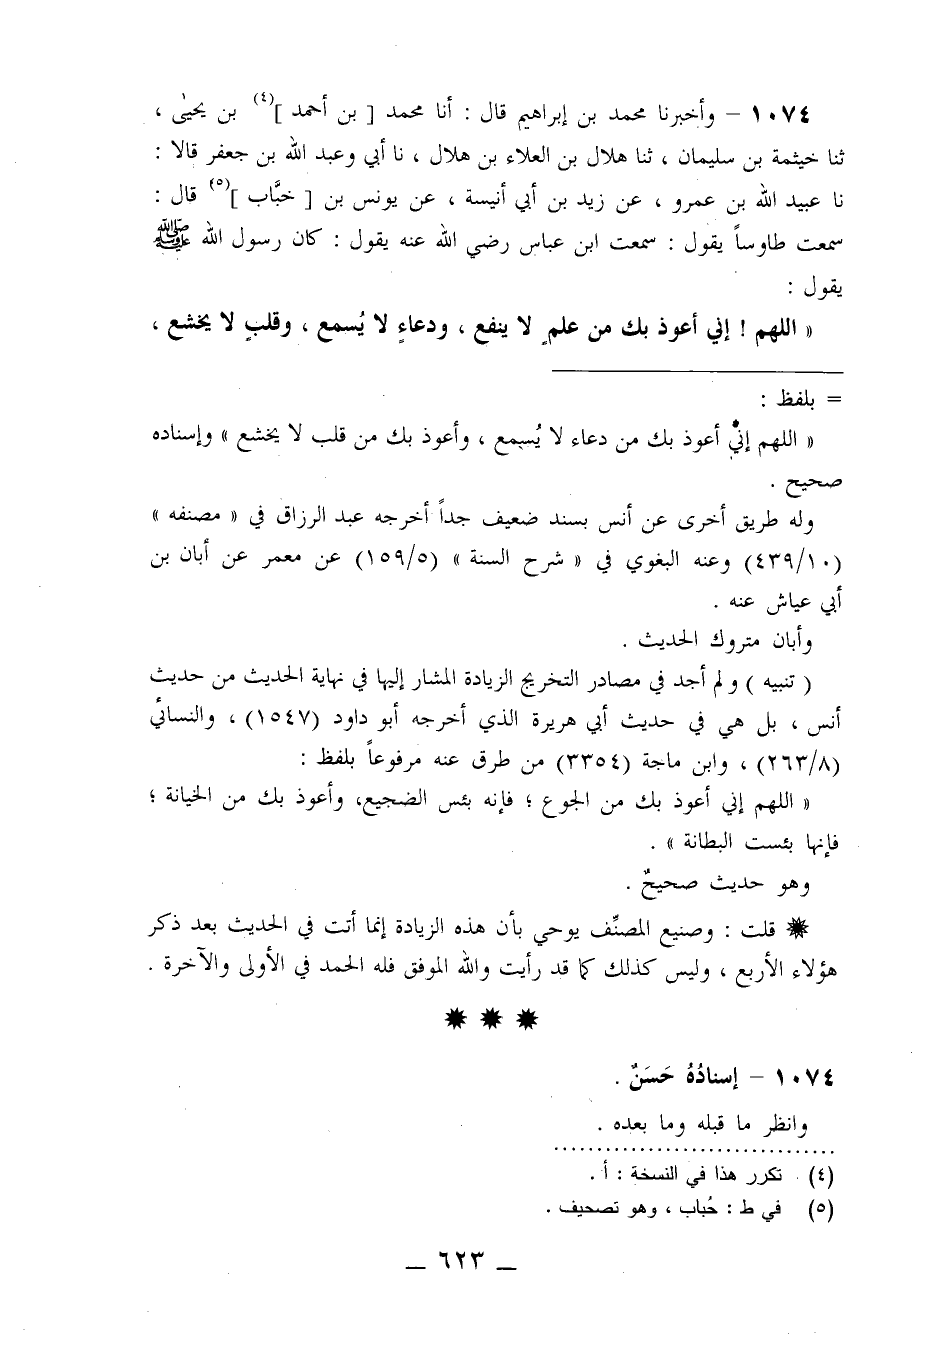 ١٠٧٤ – وأخبرنا محمد بن إبراهيم قال : أنا محمد [ بن أحمد ](٤) بن يحيىٰ ،
ثنا خيثمة بن سليمان ، ثنا هلال بن العلاء بن هلال ، نا أبي وعبد الله بن جعفر قالا :
نا عبيد الله بن عمرو ، عن زيد بن أبي أنيسة ، عن يونس بن [ خبَّاب ](٥) قال :
سمعت طاوساً يقول : سمعت ابن عباس رضي الله عنه يقول : كان رسول الله ﷺ
يقول :
« اللهم ! إني أعوذ بك من علمٍ لا ينفع ، ودعاءٍ لا يُسمع ، وقلبٍ لا يخشع ،
= بلفظ :
« اللهم إنيْ أعوذ بك من دعاء لا يُسمع ، وأعوذ بك من قلب لا يخشع » وإسناده
صحيح .
وله طريق أخرى عن أنس بسند ضعيف جداً أخرجه عبد الرزاق في « مصنفه »
(٤٣٩/١٠) وعنه البغوي في « شرح السنة » (١٥٩/٥) عن معمر عن أبان بن
أبي عياش عنه .
وأبان متروك الحديث .
( تنبيه ) ولم أجد في مصادر التخريج الزيادة المشار إليها في نهاية الحديث من حديث
أنس ، بل هي في حديث أبي هريرة الذي أخرجه أبو داود (١٥٤٧) ، والنسائي
(٢٦٣/٨) ، وابن ماجة (٣٣٥٤) من طرق عنه مرفوعاً بلفظ :
« اللهم إني أعوذ بك من الجوع ؛ فإنه بئس الضجيع، وأعوذ بك من الخيانة ؛
فإنها بئست البطانة » .
وهو حديث صحيحٌ .
✸ قلت : وصنيع المصنِّف يوحي بأن هذه الزيادة إنما أتت في الحديث بعد ذكر
هؤلاء الأربع ، وليس كذلك كما قد رأيت والله الموفق فله الحمد في الأولى والآخرة .
✸ ✸ ✸
١٠٧٤ – إسنادُهُ حَسَنٌ .
وانظر ما قبله وما بعده .
(٤) تكرر هذا في النسخة : أ .
(٥) في ط : حُباب ، وهو تصحيف .
_ ٦٢٣ _